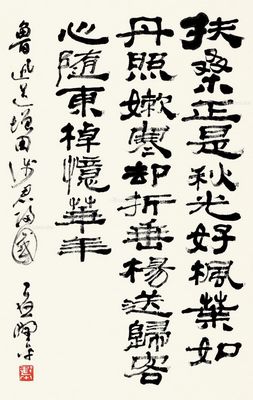 扶桑正是秋光好楓葉如
丹照嫩寒却折垂楊送歸客
心随東棹憶華年
魯迅送增田涉君歸國